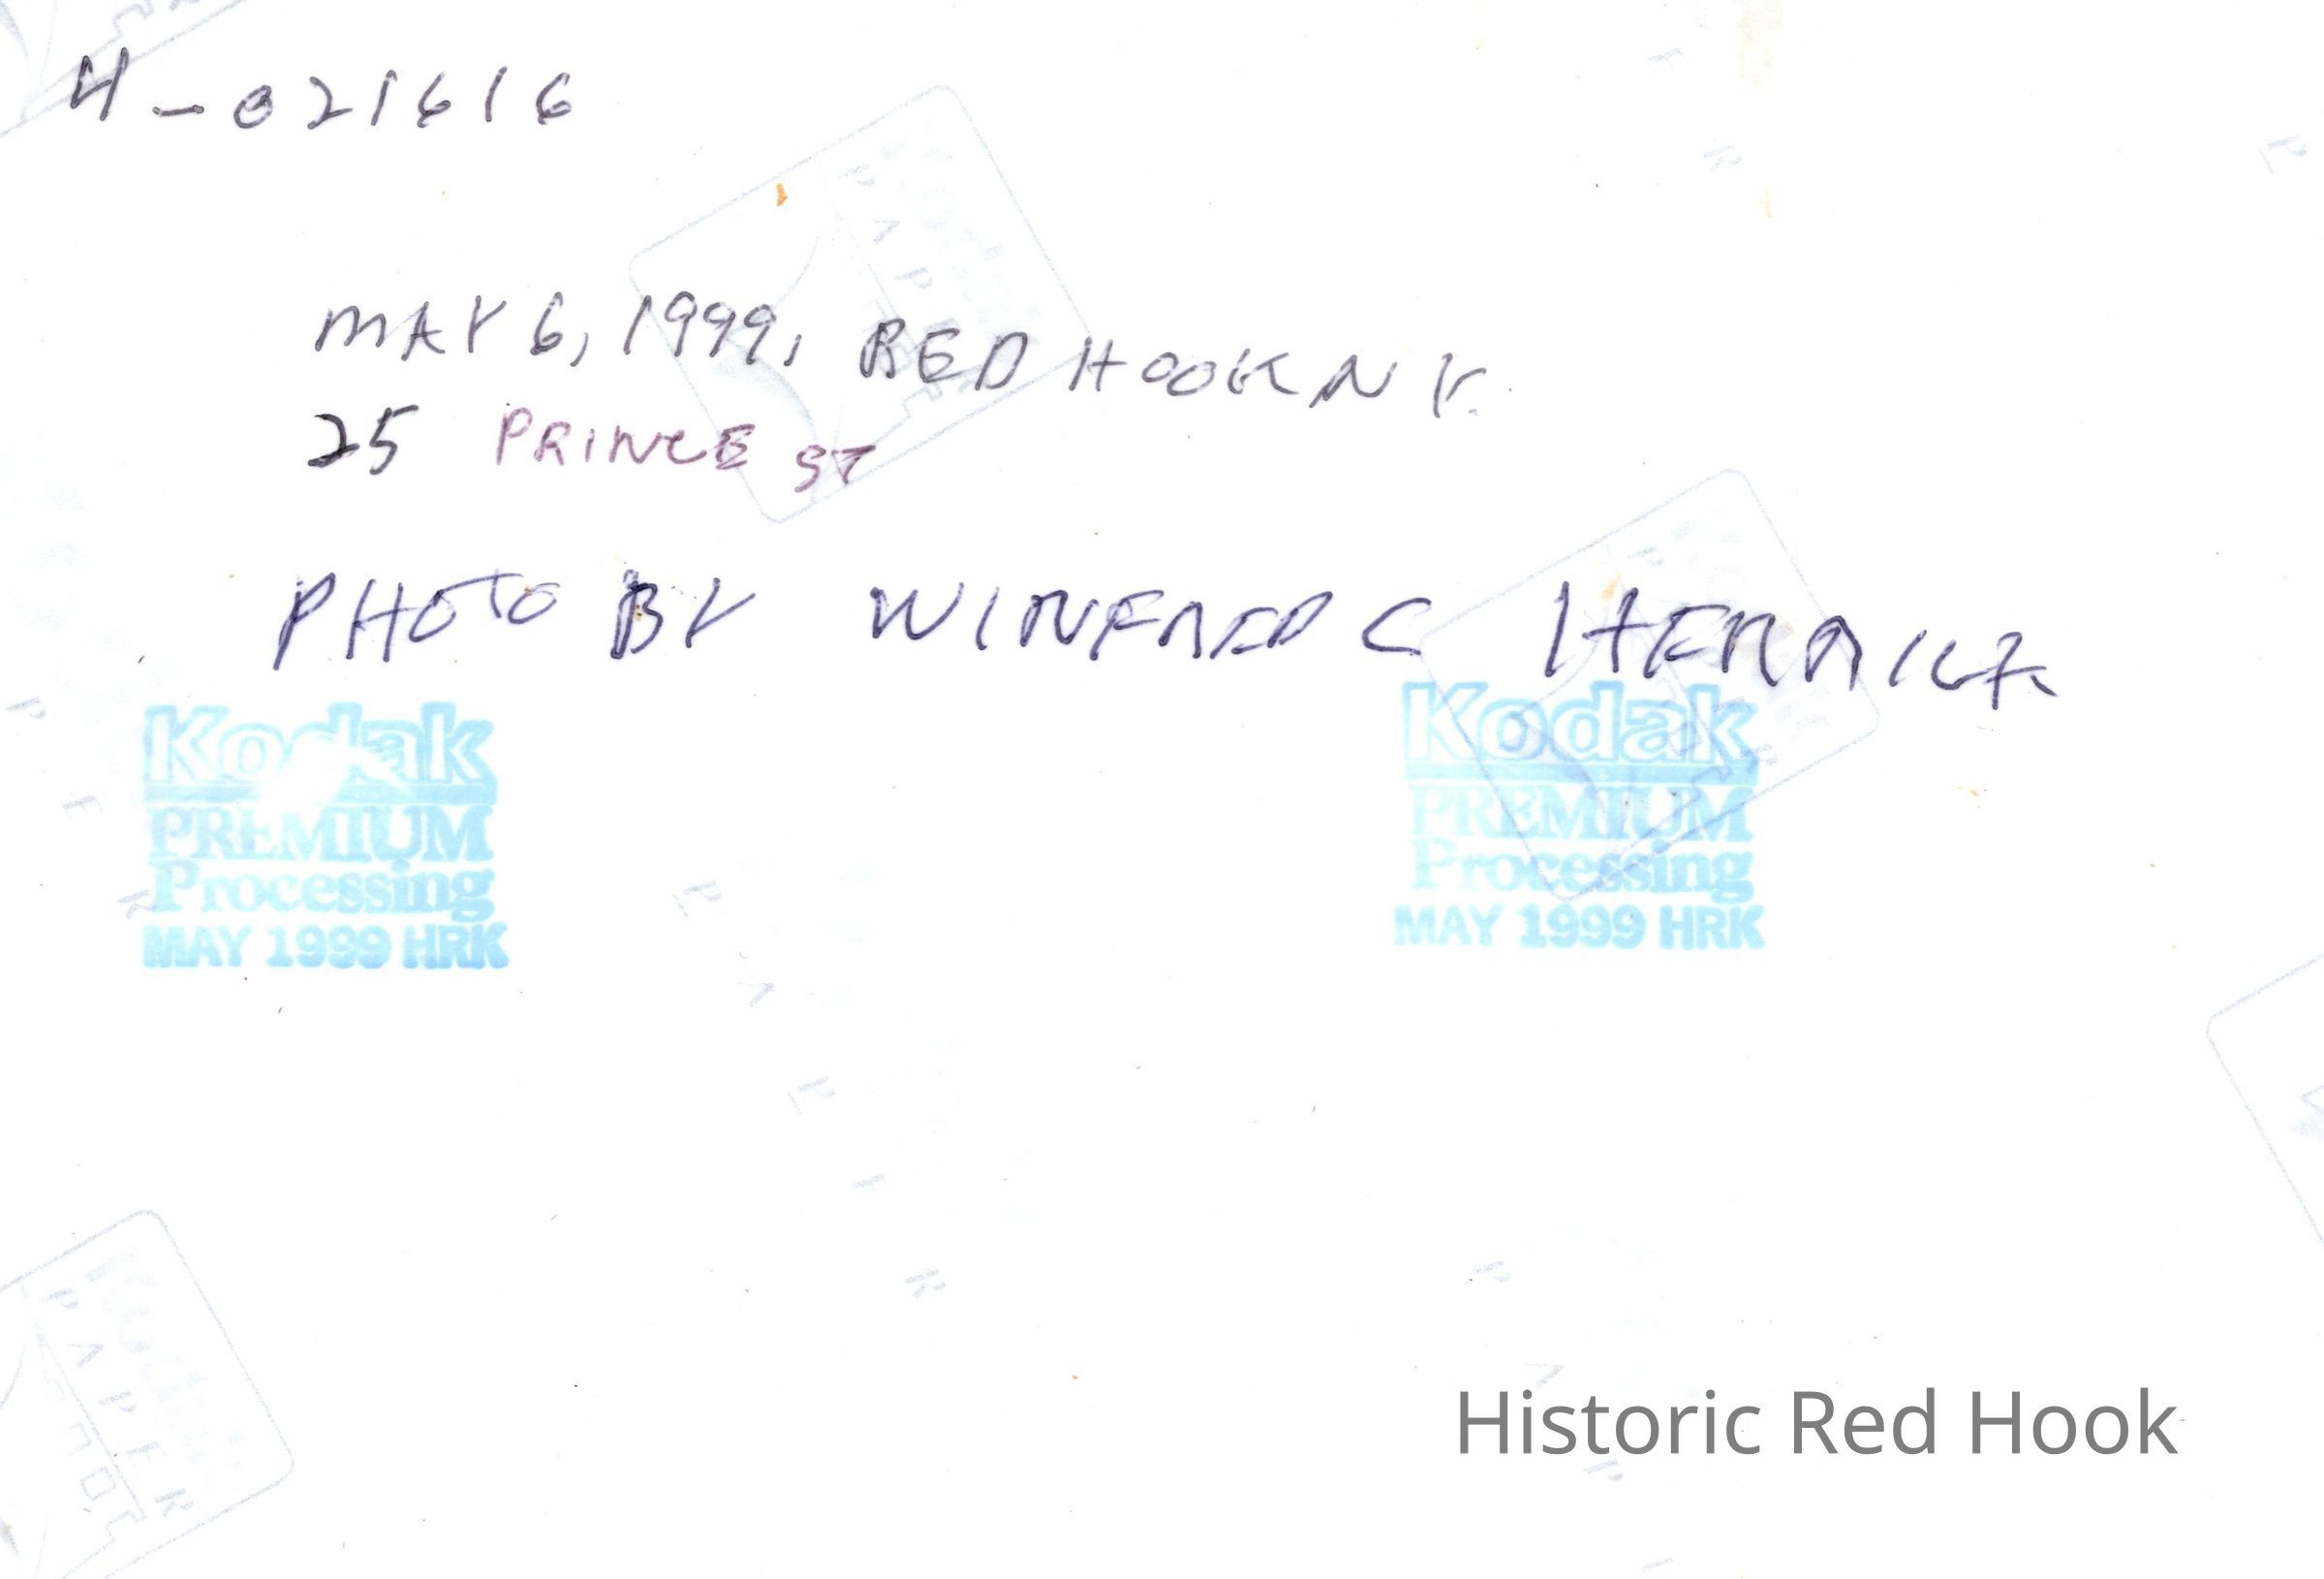 H-021616
MAY 6, 1999, RED HOOK N Y.
25 PRINCE ST
PHOTO BY WINFRED C HERRICK
Kodak
PREMIUM
Processing
MAY 1999 HRK
Kodak
PREMIUM
Processing
MAY 1999 HRK
Historic Red Hook